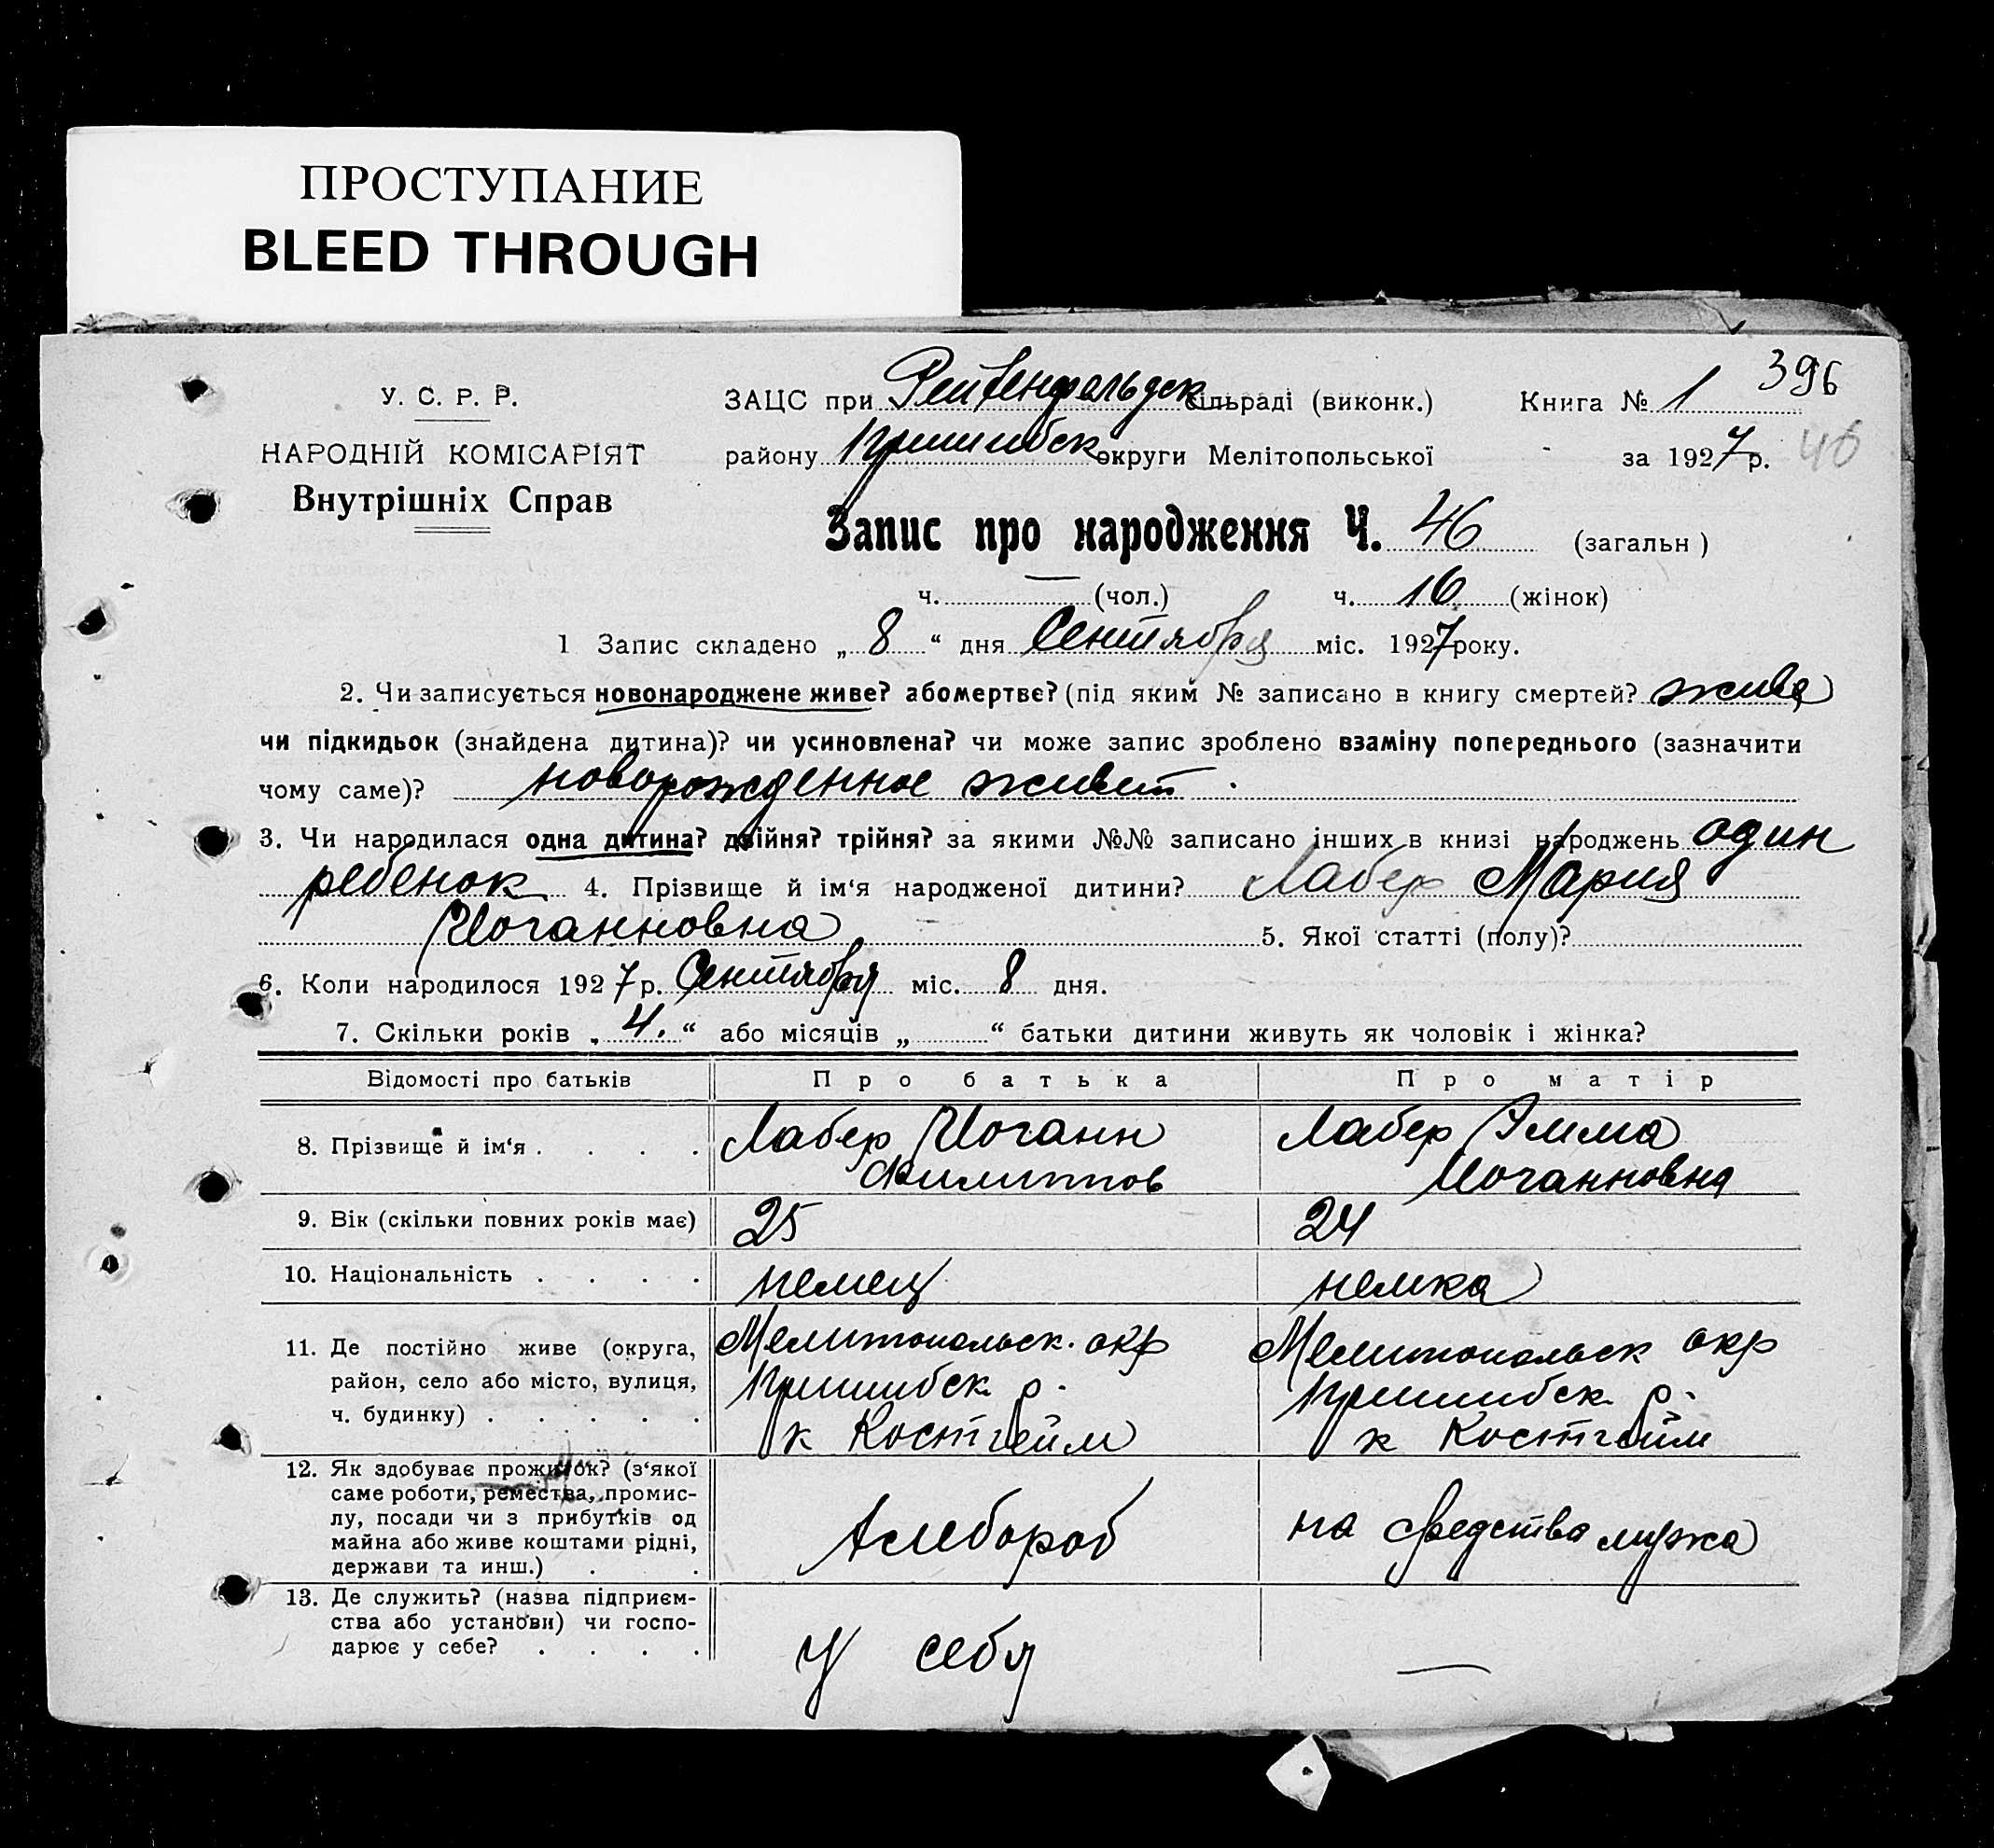 ПРОСТУПАНИЕ
BLEED THROUGH
У. С. Р. Р.
НАРОДНІЙ КОМІСАРІЯТ
Внутрішніх Справ
396
ЗАЦС при Рейхенфельдск сільраді (виконк.) Книга № 1
району Пришибск округи Мелітопольської за 1927 р. 46
Запис про народження Ч. 46 (загальн)
ч. — (чол.) ч. 16 (жінок)
1 Запис складено „ 8 “ дня Сентября міс. 1927 року.
2. Чи записується новонароджене живе? або мертвє? (під яким № записано в книгу смертей?
чи підкидьок (знайдена дитина)? чи усиновлена? чи може запис зроблено взаміну попереднього (зазначити
чому саме)? новорожденное живет.
3. Чи народилася одна дитина? двійня? трійня? за якими №№ записано інших в книзі народжень один
ребенок 4. Прізвище й ім‘я народженої дитини? Лабер Мария
Иоганновна 5. Якої статті (полу)?
6. Коли народилося 1927 р. Сентября міс. 8 дня.
7. Скільки років „ 4. “ або місяців „ “ батьки дитини живуть як чоловік і жінка?
Відомості про батьків Про батька Про матір
8. Прізвище й ім‘я . . . . . Лабер Иоганн Филиппов Лабер Эмма Иоганновна
9. Вік (скільки повних років має) 25 24
10. Національність . . . . немец немка
11. Де постійно живе (округа,
район, село або місто, вулиця,
ч. будинку) . . . . .
Мелитопольск. окр
Пришибск р.
к Костгейм
Мелитопольск окр
Пришибск р.
к Костгейм
12. Як здобуває прожиток? (з‘якої
саме роботи, ремества, промис-
лу, посади чи з прибутків од
майна або живе коштами рідні,
держави та инш.) . .
Хлебороб
на средства мужа
13. Де служить? (назва підприєм-
ства або установи) чи госпо-
дарює у себе? . . . .
у себя
—